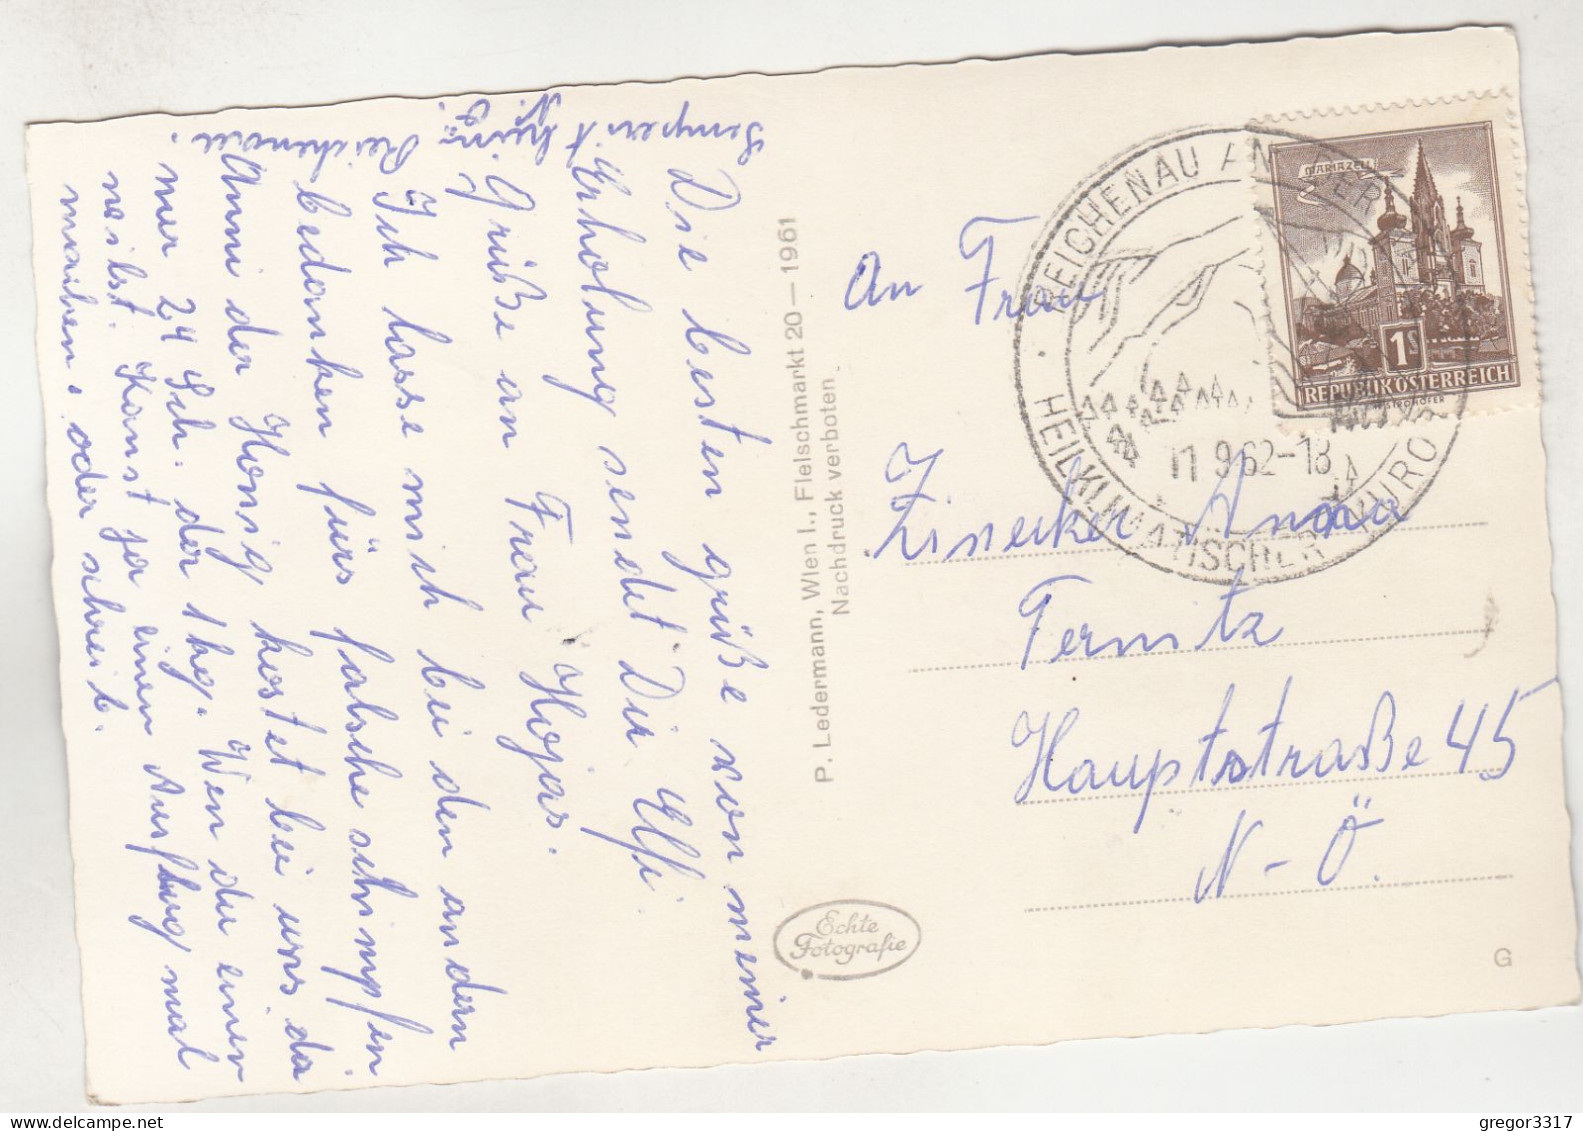 Die besten grüße von meiner
Erholung sendet Dir Elfi.
Grüße an Frau Hojas.
Ich lasse mich bei den andern
bedanken fürs falsche schimpfen
Anni der Honig kostet bei uns da
nur 24 Sch. der 1 kg. Wen du einen
wilst. Kanst ja einen Ausflug mal
machen, oder schreib.
Semperit
Reichenau.
P. Ledermann, Wien I., Fleischmarkt 20 — 1961
Nachdruck verboten
Echte
Fotografie
REICHENAU AN DER
HEILKLIMATISCHER
11 9.62-18
MARIAZELL
1S
REPUBLIK ÖSTERREICH
An Frau
Zinecker Anna
Ternitz
Hauptstraße 45
N-Ö.
G
gregor3317